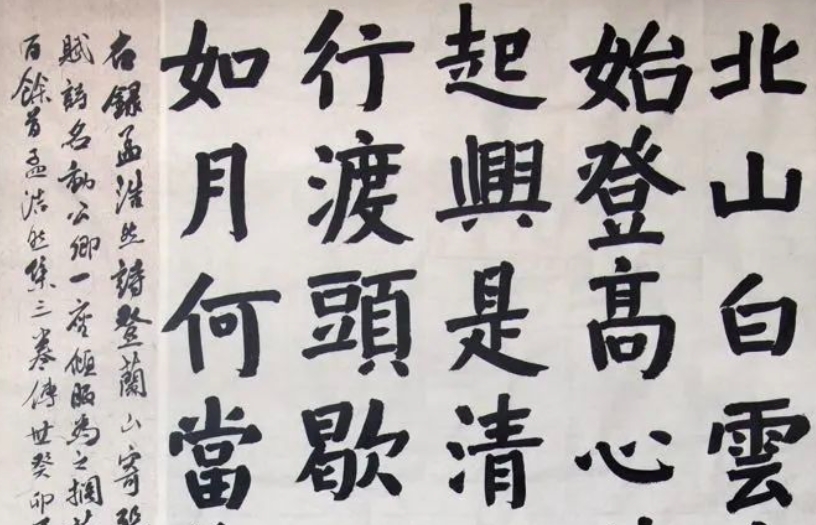 北山白雲
始登高心
起興是清
行渡頭歇
如月何當
右錄孟浩然詩登蘭山寄
賦詩名動公卿一座傾服為之擱
百餘首孟浩然集三卷傳世癸卯